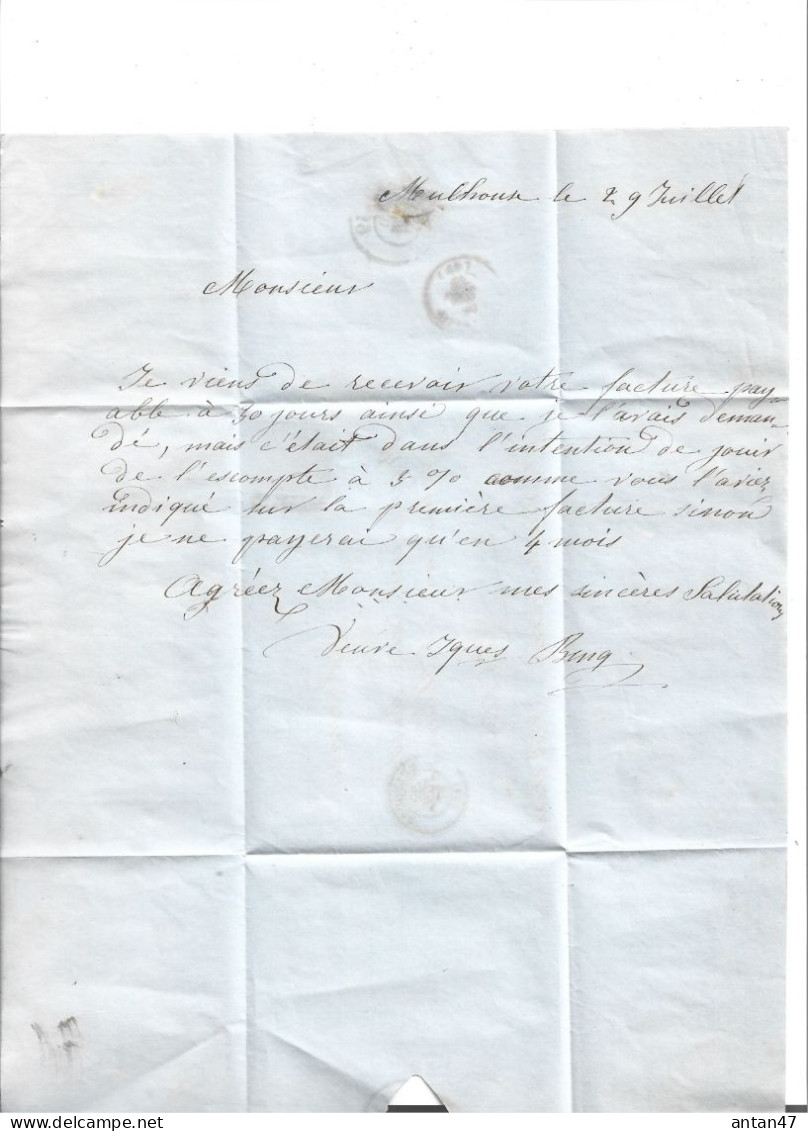 Mulhouse le 29 Juillet
Monsieur
Je viens de recevoir votre facture pay-
able à 30 jours ainsi que je l'avais deman-
dé, mais c'était dans l'intention de jouir
de l'escompte à 3 % comme vous l'aviez
indiqué sur la première facture sinon
je ne payerai qu'en 4 mois
Agréez Monsieur mes sincères Salutations
Veuve Jques Bung
delcampe.net
antan47